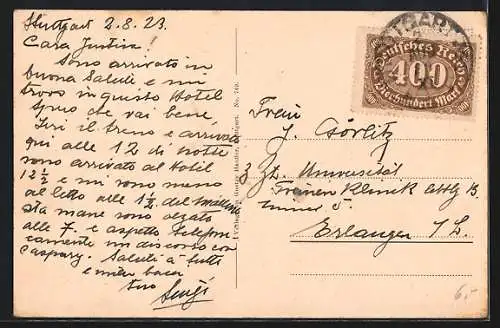 Stuttgart 2.8.23.
Cara Justina!
Sono arrivato in
buona Saluti e mi
trovo in questo Hotel
Spero che vai bene,
Ieri il treno e arrivato
qui alle 12 di notte
sono arrivato al Hotel
12 ½ e mi sono messo
al letto alle 1 ½ del mattino
sta mane sono alzato
alle 7. e aspetto telefon
camente un discorso con
Caspary. Saluti a tutti
e mille baci
tuo Luigi
No. 740.
STUTTGART
Deutsches Reich
400
Vierhundert Mark
Frau
J. Görlitz
z. Zt. Universität
Frauen Klinik Abtlg B.
Zimmer 5.
Erlangen i/B.
6,-